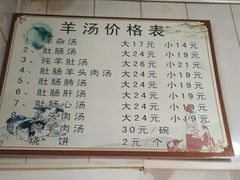 羊汤价格表
1、羊杂汤 大17元 小14元
2、肚肠汤 大24元 小19元
3、纯羊肚汤 大26元 小21元
4、肚肠羊头肉汤 大24元 小19元
5、肚肠肺汤 大24元 小19元
6、肚肠肝汤 大24元 小19元
7、肚肠心汤 大24元 小19元
羊头肉汤 大24元 小19元
羊肉汤 30元/碗
烧饼 2元/个